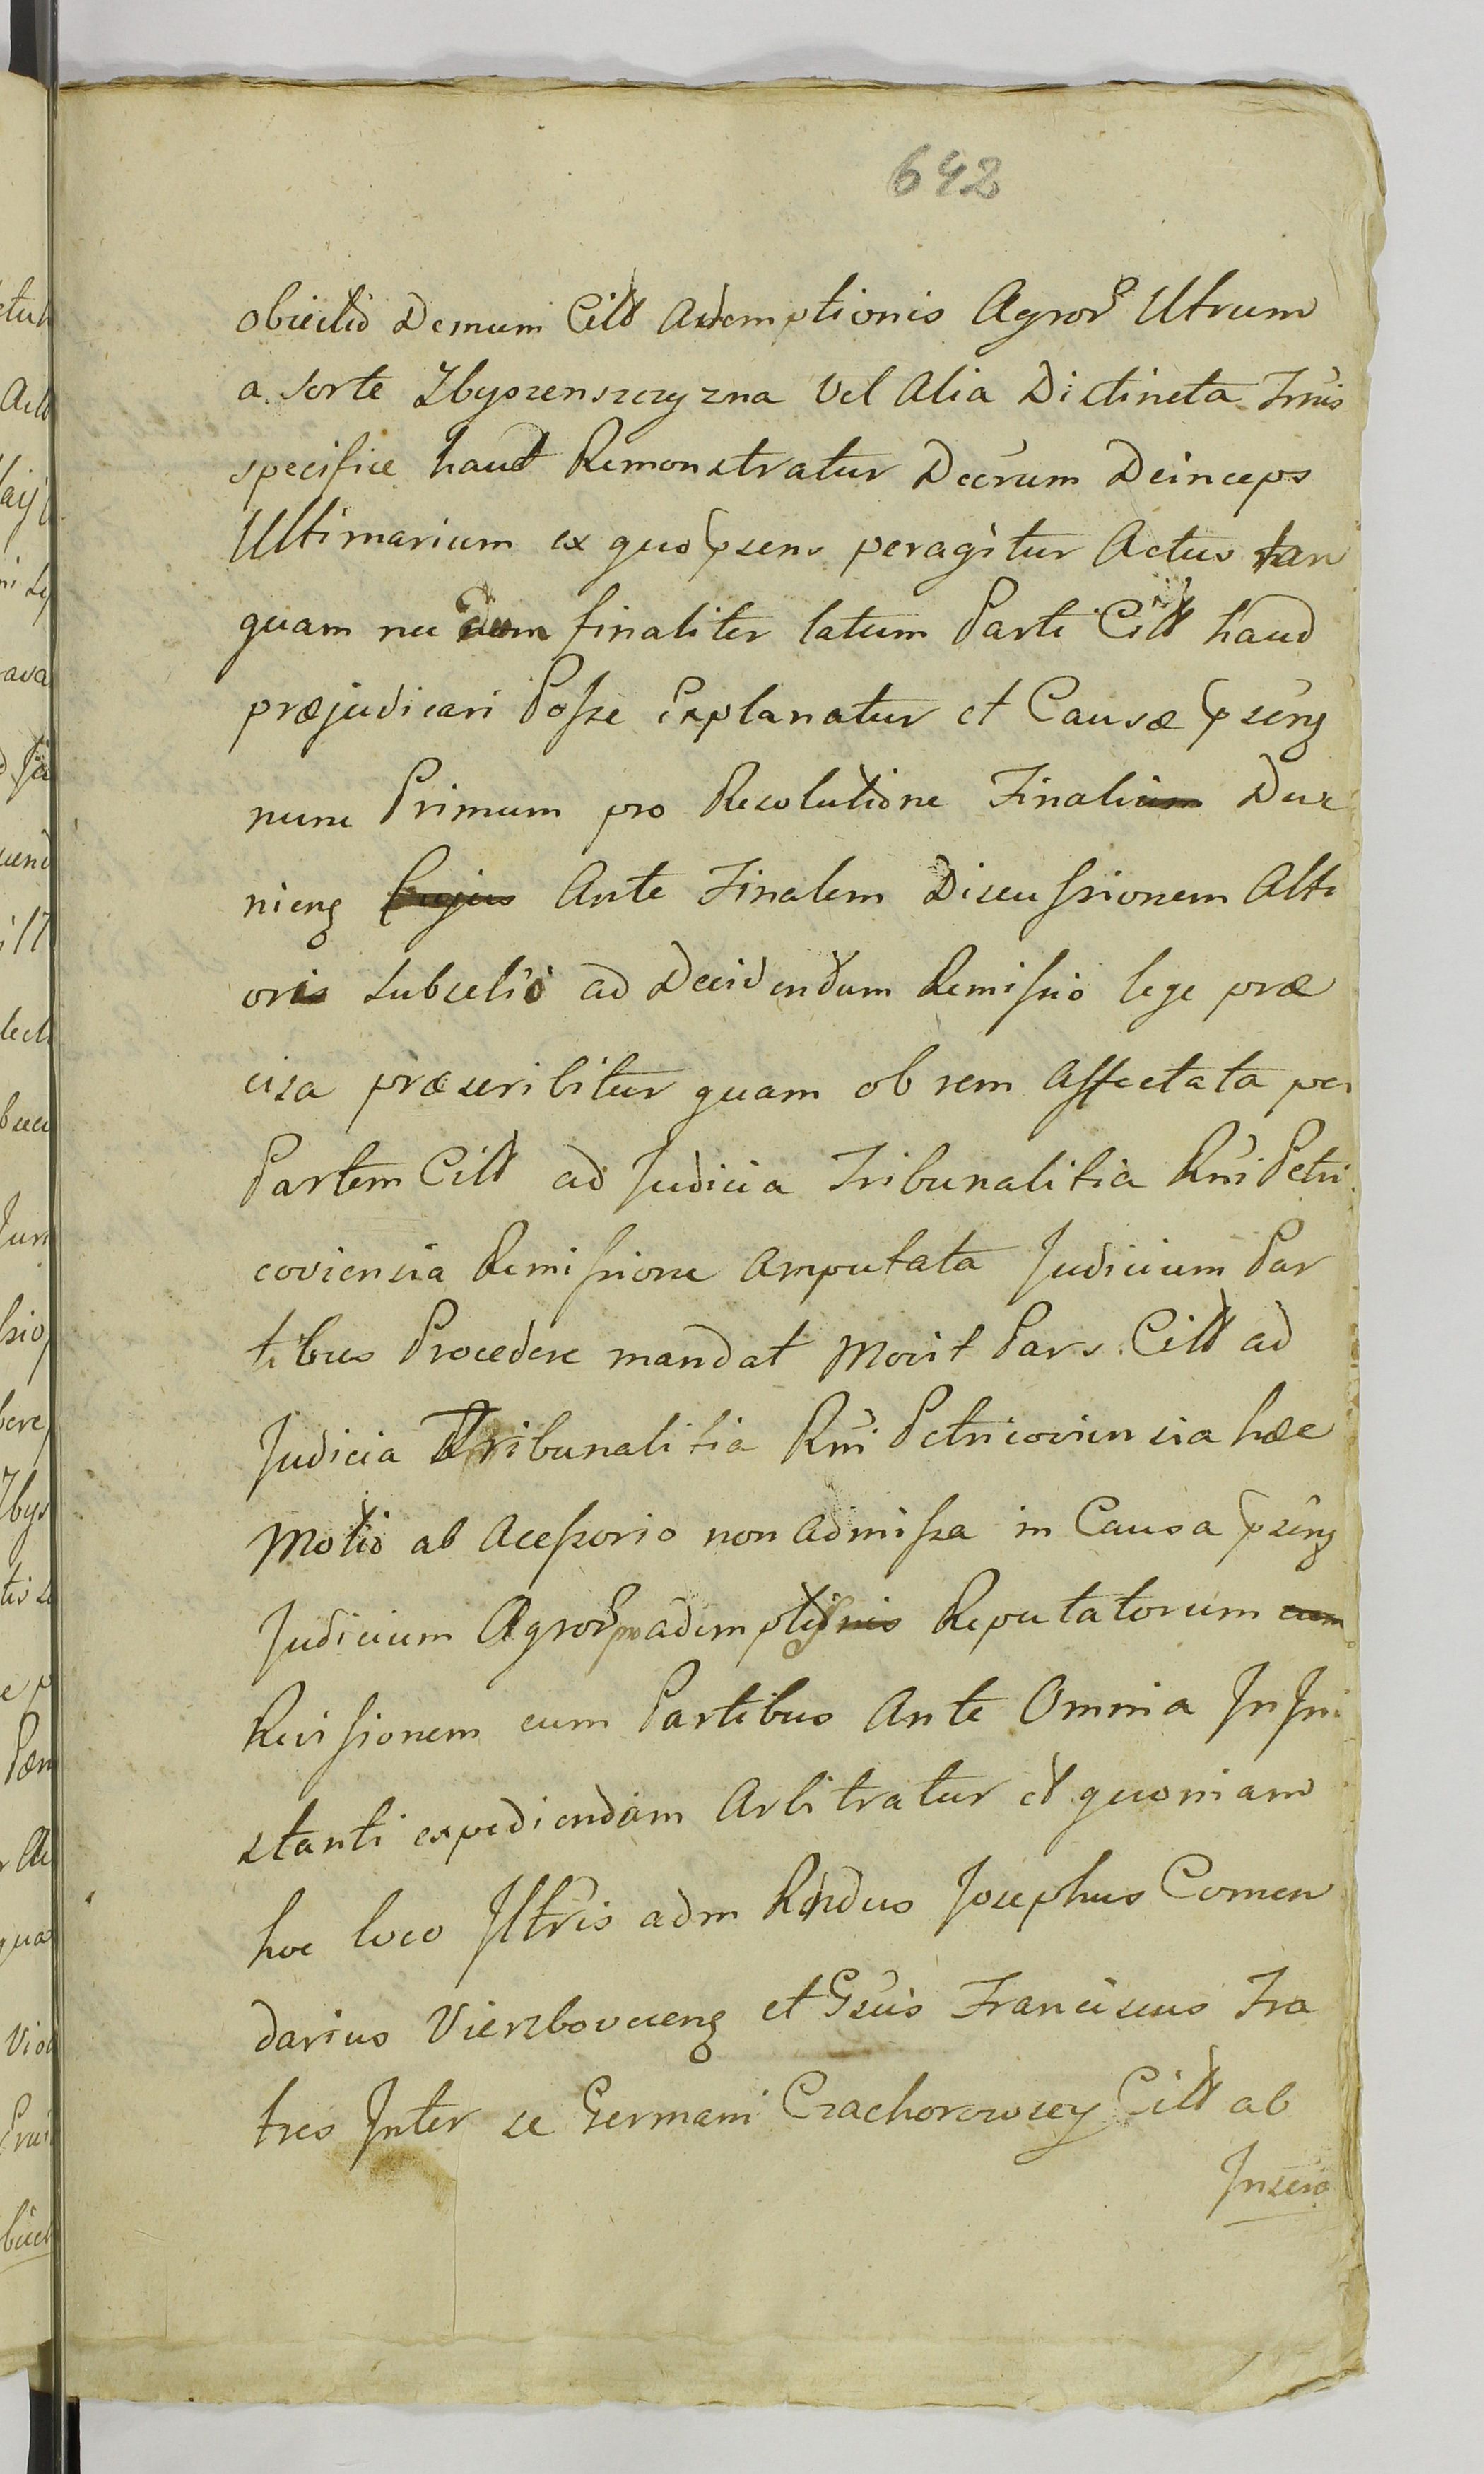 642
obiectio Demum Citt Ademptionis Agror Utrum
a sorte Zbyszenszczyzna vel alia Distincta Irnis
specifice haud Remonstratur Decrum Deinceps
Ultimarium ex quo psens peragitur Actus tan
quam nec dum finaliter latum Parti Citt haud
præjudicari Posse Explanatur et Causæ pseng
nunc Primum pro Resolutione Finali Dve
nieng Ante Finalem Discussionem Alti
oris Subselio ad Decidendum Remissio lege præ
cisa præscribitur quam ob rem Affectata per
Partem Citt ad Judicia Tribunalitia Rni Petri
coviensia Remissione amputata Judicium Par
tibus Procedere mandat Movit Pars Citt ad
Judicia Tribunalitia Rni Petricoviensia hæc
Motio ab Acessorio non admissa in Causa pseng
Judicium Agror pro ademptis Reputatorum
Revissionem cum Partibus Ante Omnia In Ini
stanti expediendam Arbitratur et quoniam
hoc loco Illtris adm Rndus Josephus Comen
darius Vierzboveceng et Gsus Franciscus Fra
tres Inter se Germani Czachorowscy Citt ab
Insero